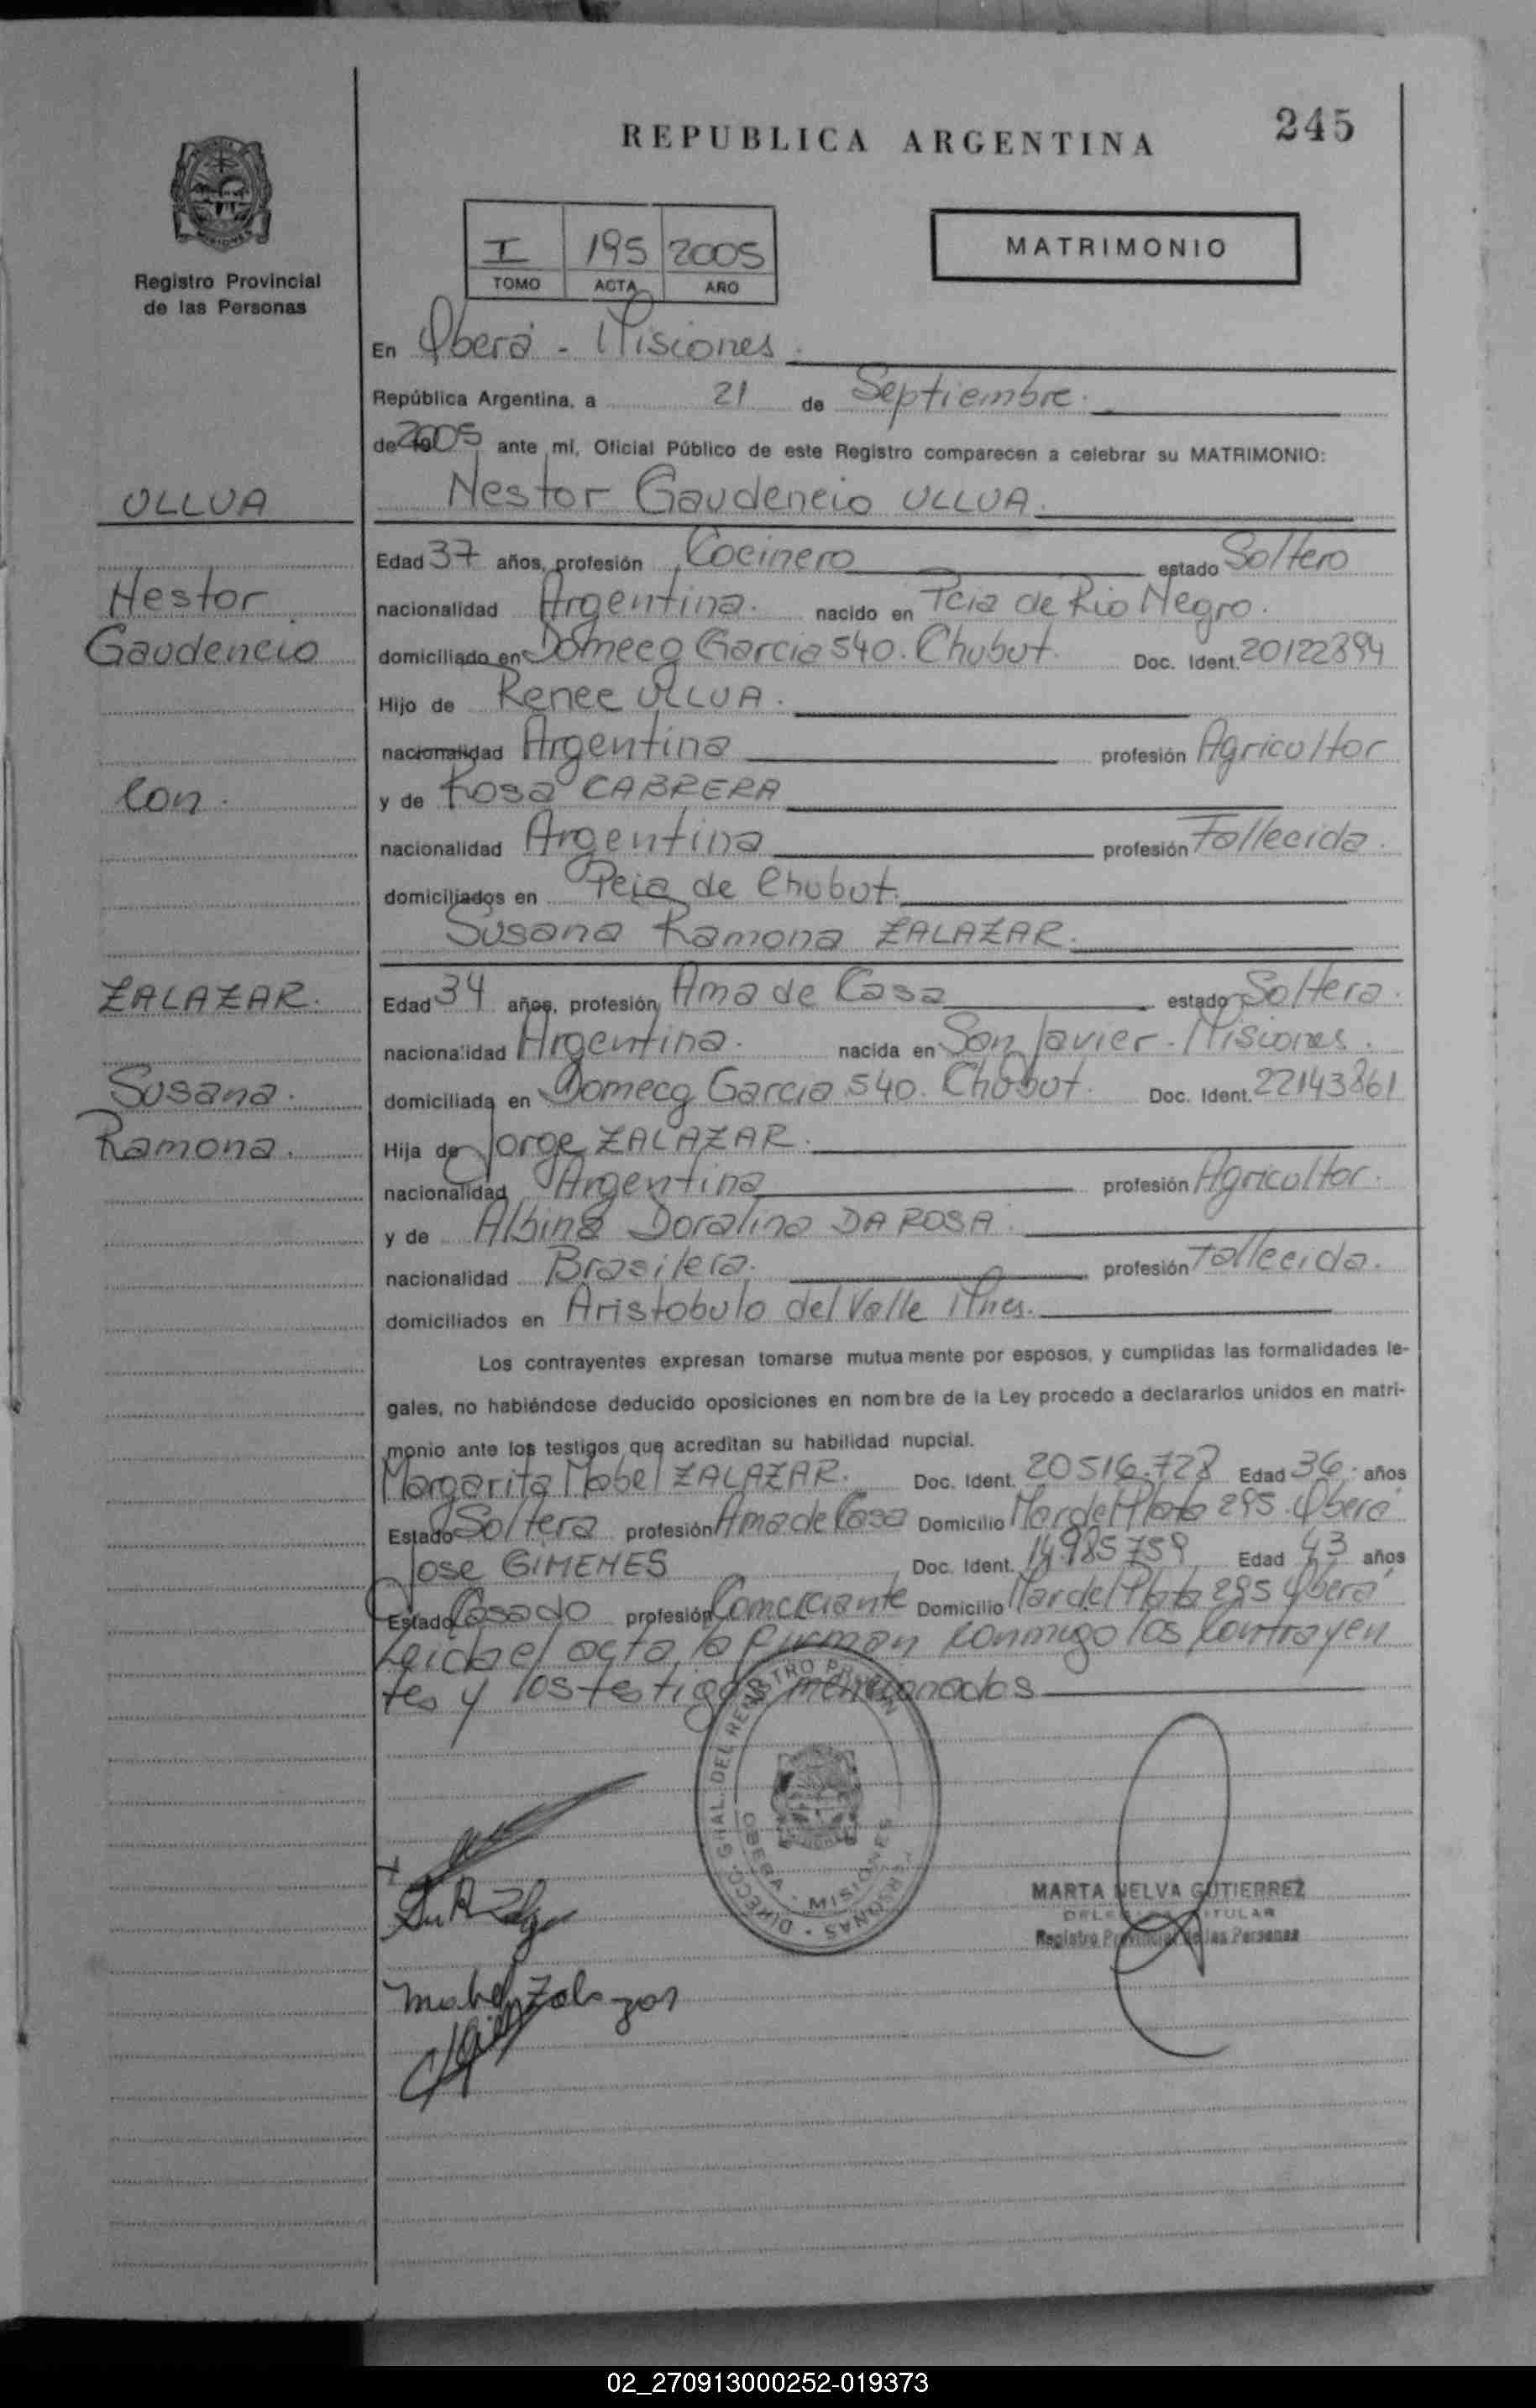 245
REPUBLICA ARGENTINA
MATRIMONIO
I 195 2005
TOMO ACTA AÑO
Registro Provincial
de las Personas
En Oberá - Misiones.
República Argentina, a 21 de Septiembre.
de 2005 ante mi, Oficial Público de este Registro comparecen a celebrar su MATRIMONIO:
ULLUA
Nestor Gaudencio ULLUA.
Edad 37 años, profesión Cocinero estado Soltero
Nestor
nacionalidad Argentina. nacido en Pcia de Rio Negro.
Gaudencio
domiciliado en Domecq Garcia 540. Chubut. Doc. Ident. 20122394
Hijo de Renee ULLUA.
nacionalidad Argentina profesión Agricultor
Con.
y de Rosa CABRERA
nacionalidad Argentina profesión Fallecida.
domiciliados en Pcia de Chubut.
Susana Ramona ZALAZAR.
ZALAZAR.
Edad 34 años, profesión Ama de Casa estado Soltera.
nacionalidad Argentina. nacida en San Javier - Misiones.
Susana.
domiciliada en Domecq Garcia 540. Chubut. Doc. Ident. 22143861
Ramona.
Hija de Jorge ZALAZAR.
nacionalidad Argentina profesión Agricultor.
y de Albina Doralina DA ROSA.
nacionalidad Brasilera. profesión Fallecida.
domiciliados en Aristobulo del Valle Mnes.
Los contrayentes expresan tomarse mutua mente por esposos, y cumplidas las formalidades le-
gales, no habiéndose deducido oposiciones en nom bre de la Ley procedo a declararlos unidos en matri-
monio ante los testigos que acreditan su habilidad nupcial.
Margarita Mabel ZALAZAR. Doc. Ident. 20516.728 Edad 36. años
Estado Soltera profesión Ama de Casa Domicilio Mar del Plata 295. Oberá
Jose GIMENES Doc. Ident. 14.985759 Edad 43 años
Estado Casado profesión Comerciante Domicilio Mar del Plata 295 Oberá
Leida el acta, la firman conmigo los contrayen
tes y los testigos mencionados
DIRECC. GRAL. DEL REGISTRO PERSONAS
OBERA - MISIONES
MARTA NELVA GUTIERREZ
DELEGADA TITULAR
Registro Provincial de las Personas
Mabel Zalazar
02_270913000252-019373